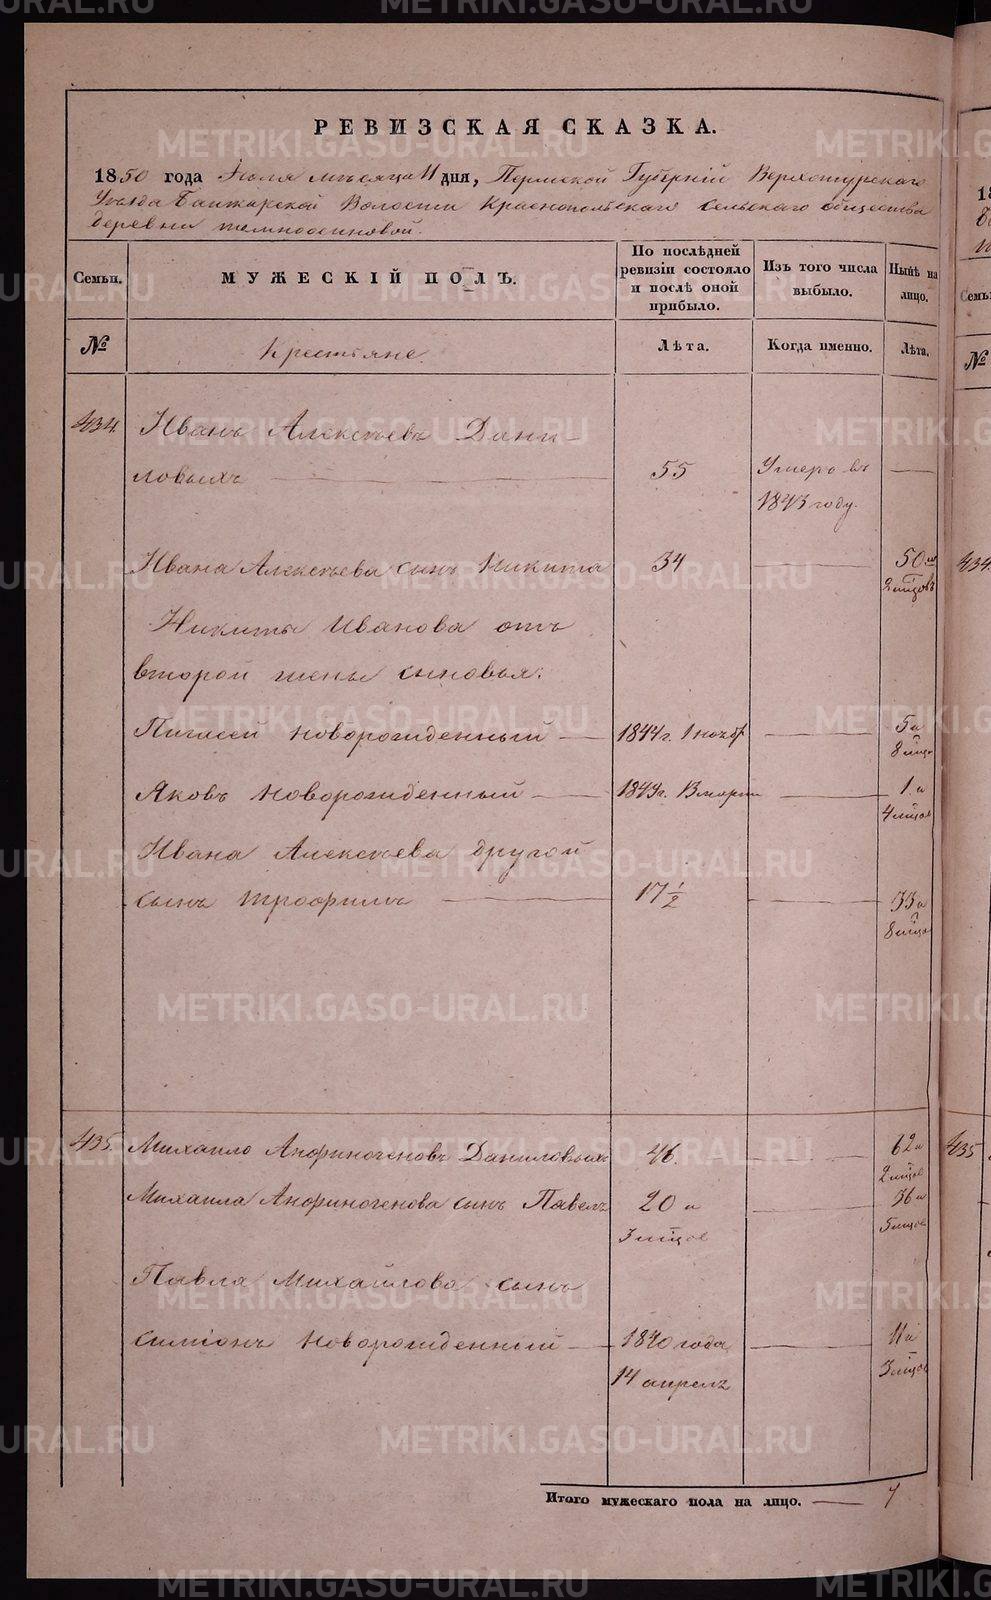 РЕВИЗСКАЯ СКАЗКА.
1850 года Июля месяца 11 дня, Пермской Губерніи Верхотурскаго
Уезда Башкарской Волости Краснопольскаго сельскаго общества
деревни темноосиновой.
Семьи. МУЖЕСКІЙ ПОЛЪ. По послѣдней ревизіи состояло и послѣ оной прибыло. Изъ того числа выбыло. Нынѣ на лицо.
№ Крестьяне. Лѣта. Когда именно. Лѣта.
434. Иванъ Алексѣевъ Дани-
ловыхъ 55 Умеръ въ
1843 году.
Ивана Алексѣева сынъ Никита 34 50 и
2 мцовъ
Никиты Иванова отъ
второй жены сыновья:
новорожденный 1844 г. 1 нояб 5 и
8 мцо
Яковъ новорожденный 1849 г. В марти 1 и
4 мцов
Ивана Алексѣева другой
сынъ трофимъ 17 1/2 33 и
8 мцо
435. Михаило Анфиногеновъ Даниловыхъ 46. 62 и
2 мцов
Михаила Анфиногенова сынъ Павелъ 20 и 36 и
3 мцов 5 мцов
Павла Михайлова сынъ
симіонъ новорожденный 1840 года 11 и
14 апрель 3 мцов
Итого мужескаго пола на лицо. 7
434
435
METRIKI.GASO-URAL.RU